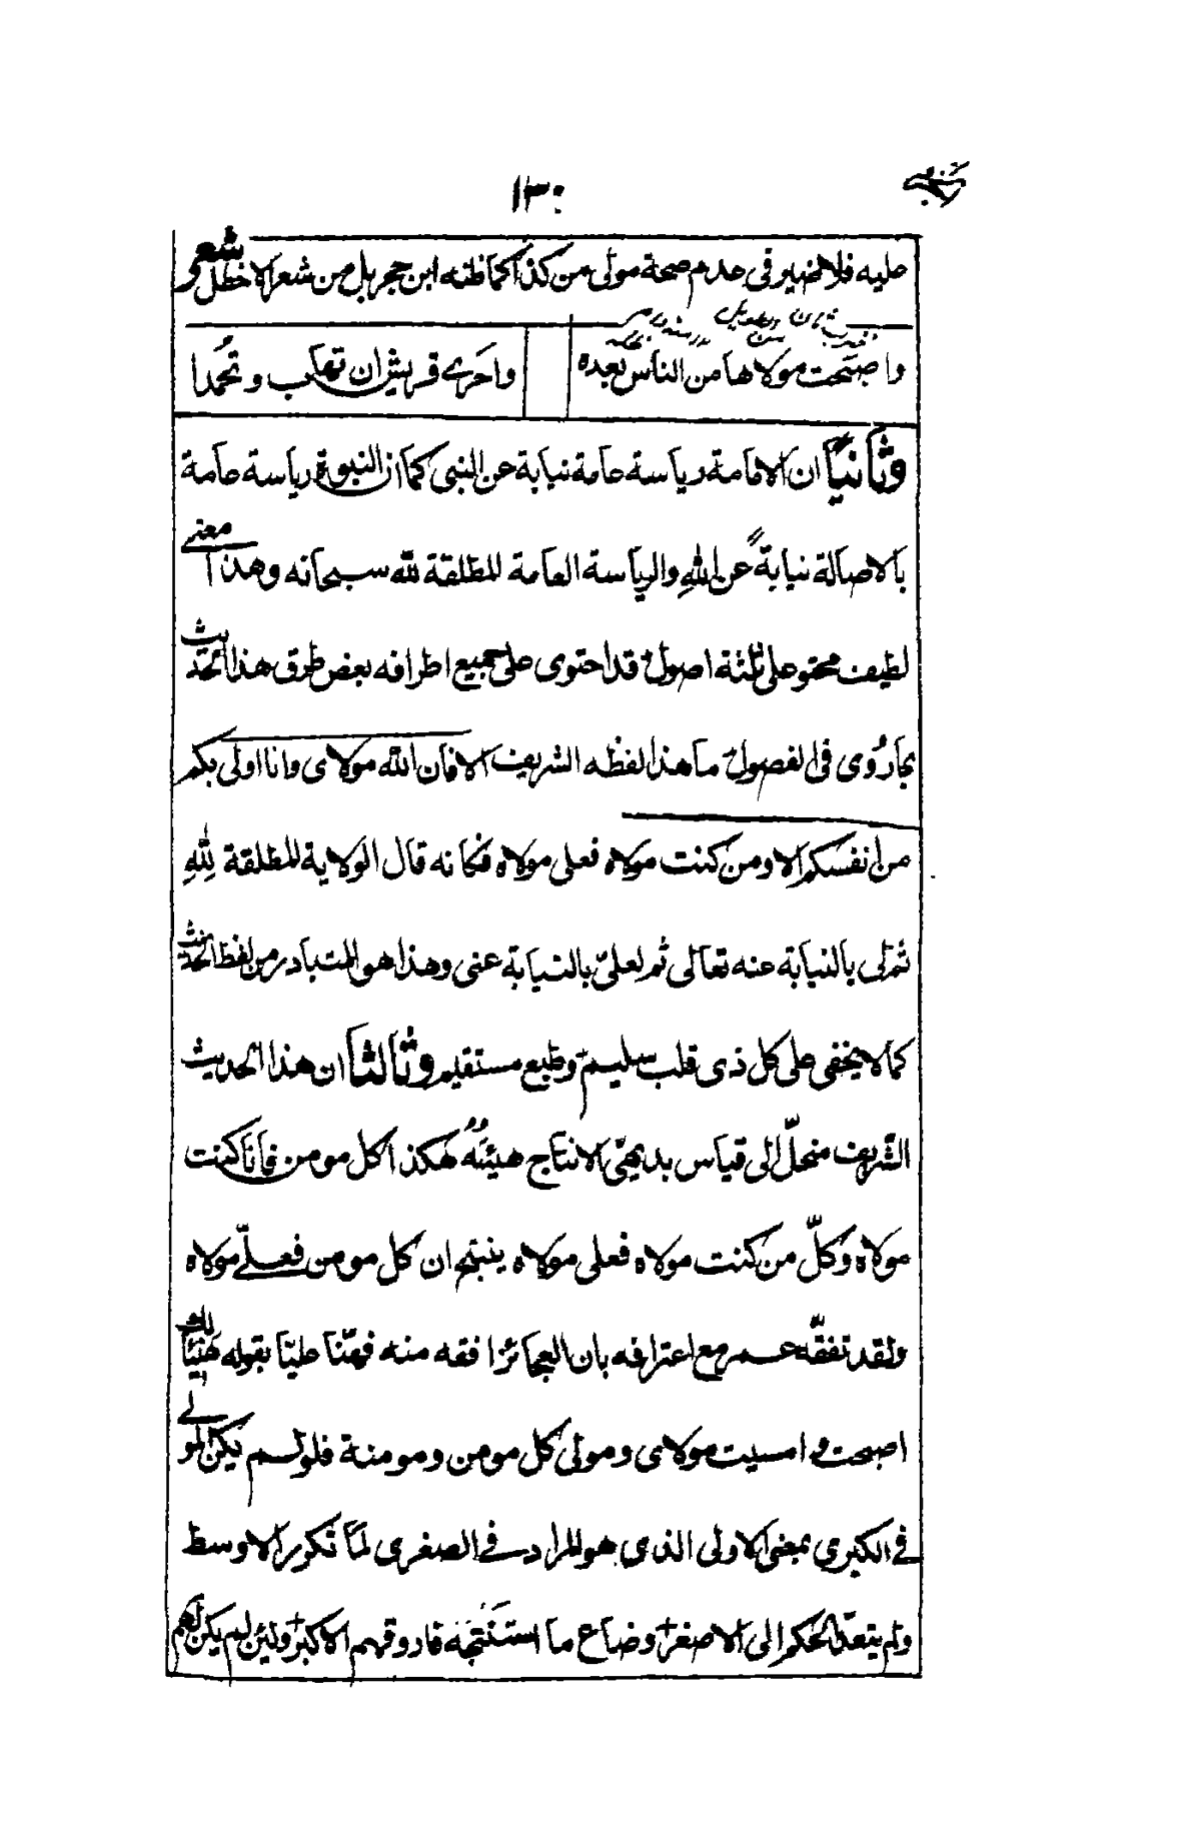 ١٣٠
عليه فلا ضير فى عدم صحة مولى من كذا كما ظنه ابن حجر بل من شعر الاخطل شعر
واصبحت مولاها من الناس بعده واحرى قريش ان تهاب وتحمدا
وثانيًا ان الامامة رياسة عامة نيابة عن النبى كما ان النبوة رياسة عامة
بالاصالة نيابةً عن اللهِ والرياسة العامة المطلقة لله سبحانه وهذا معنى
لطيف محتو على ثلثة اصول قد احتوى على جميع اطرافه بعض طرق هذا الحديث
بما رُوى فى الفصول ما هذا لفظه الشريف الا فان الله مولاى وانا اولى بكم
من انفسكم الا ومن كنت مولاه فعلى مولاه فكانه قال الولاية المطلقة لِلّٰهِ
ثم لى بالنيابة عنه تعالى ثم لعلىّ بالنيابة عنى وهذا هو المتبادر من لفظ الحديث
كما لا يخفى على كل ذى قلب سليم وطبع مستقيم وثالثًا ان هذا الحديث
الشّريف منحلّ الى قياس بديهىّ الانتاج هيئتُهُ هكذا كل مومن فانا كنت
مولاه وكلّ من كنت مولاه فعلى مولاه ينتج ان كل مومن فعلىّ مولاه
ولقد تفقّه عمر مع اعترافه بان العجائز افقه منه فهنّا عليّا بقوله هنيئًا لك
اصبحت و امسيت مولاى ومولى كل مومن ومومنة فلو لم يكن المولى
فى الكبرى بمعنى الاولى الذى هو المراد فى الصغرى لمّا تكرر الاوسط
ولم يتعدّ الحكم الى الاصغر وضاع ما استنتجه فاروقهم الاكبر ولئن لم يكن لهم